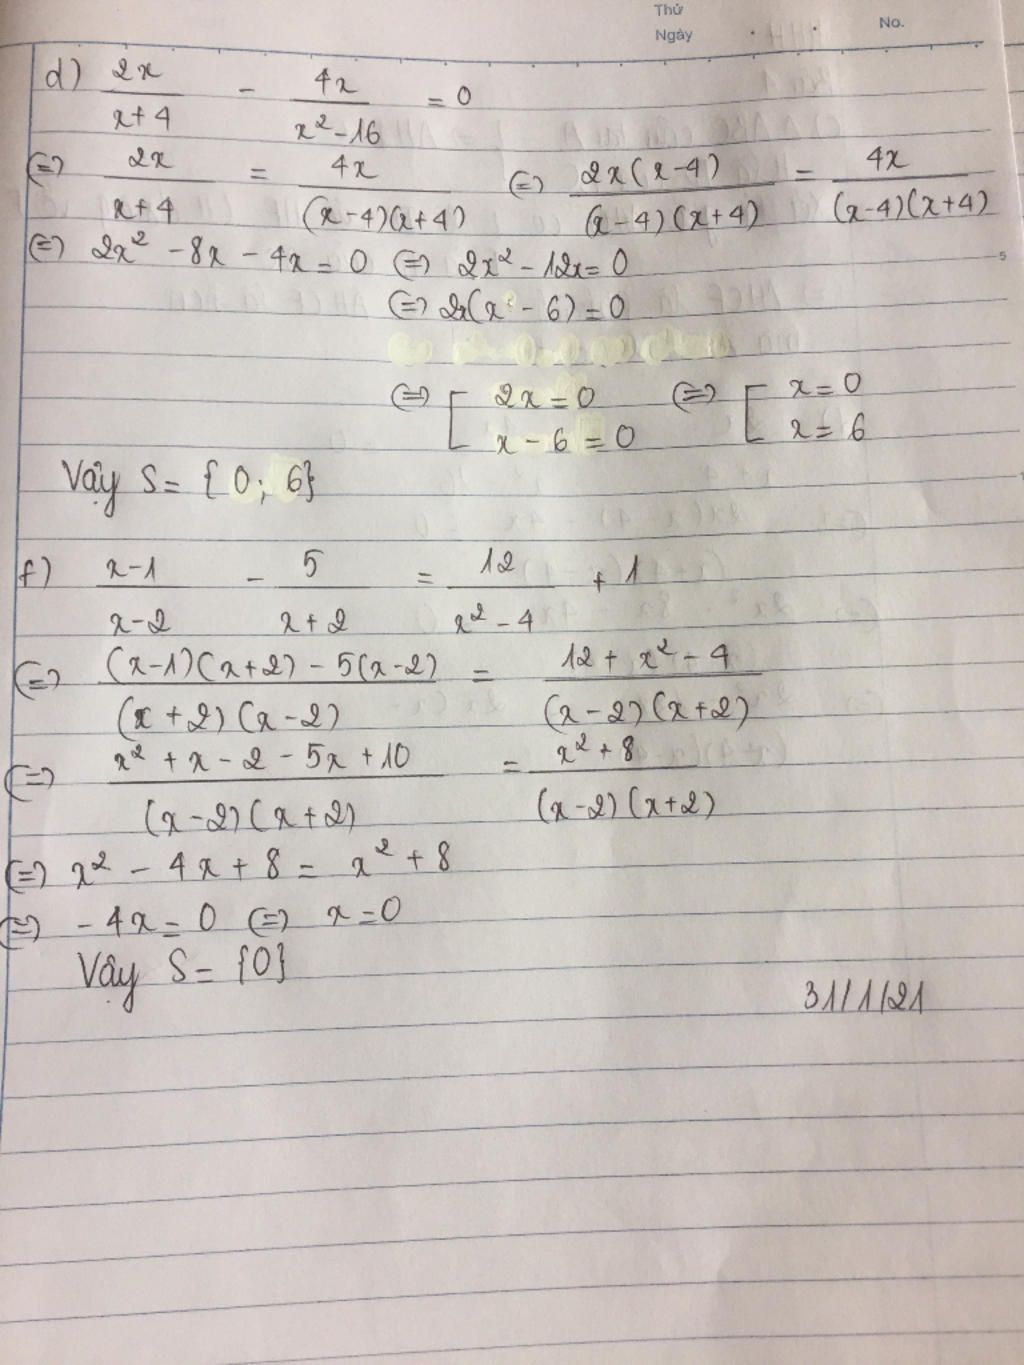 Thứ
Ngày
No.
d) 2x/(x+4) - 4x/(x²-16) = 0
(=) 2x/(x+4) = 4x/((x-4)(x+4)) (=) 2x(x-4)/((x-4)(x+4)) = 4x/((x-4)(x+4))
(=) 2x² - 8x - 4x = 0 (=) 2x² - 12x = 0
(=) 2x(x - 6) = 0
(=) [ 2x = 0 (=) [ x = 0
x - 6 = 0 x = 6
Vậy S = {0; 6}
f) (x-1)/(x-2) - 5/(x+2) = 12/(x²-4) + 1
(=) ((x-1)(x+2) - 5(x-2))/((x+2)(x-2)) = (12 + x² - 4)/((x-2)(x+2))
(=) (x² + x - 2 - 5x + 10)/((x-2)(x+2)) = (x² + 8)/((x-2)(x+2))
(=) x² - 4x + 8 = x² + 8
(=) - 4x = 0 (=) x = 0
Vậy S = {0}
31/1/21